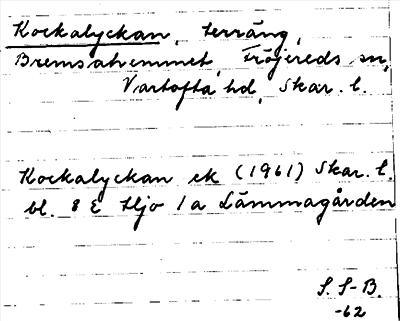 Kockalyckan, terräng,
Bremsahemmet, Fröjereds sn,
Vartofta hd, Skar. l.
Kockalyckan ek (1961) Skar. l.
bl. 8 E Hjo 1a Lämmagården
S. S-B.
-62